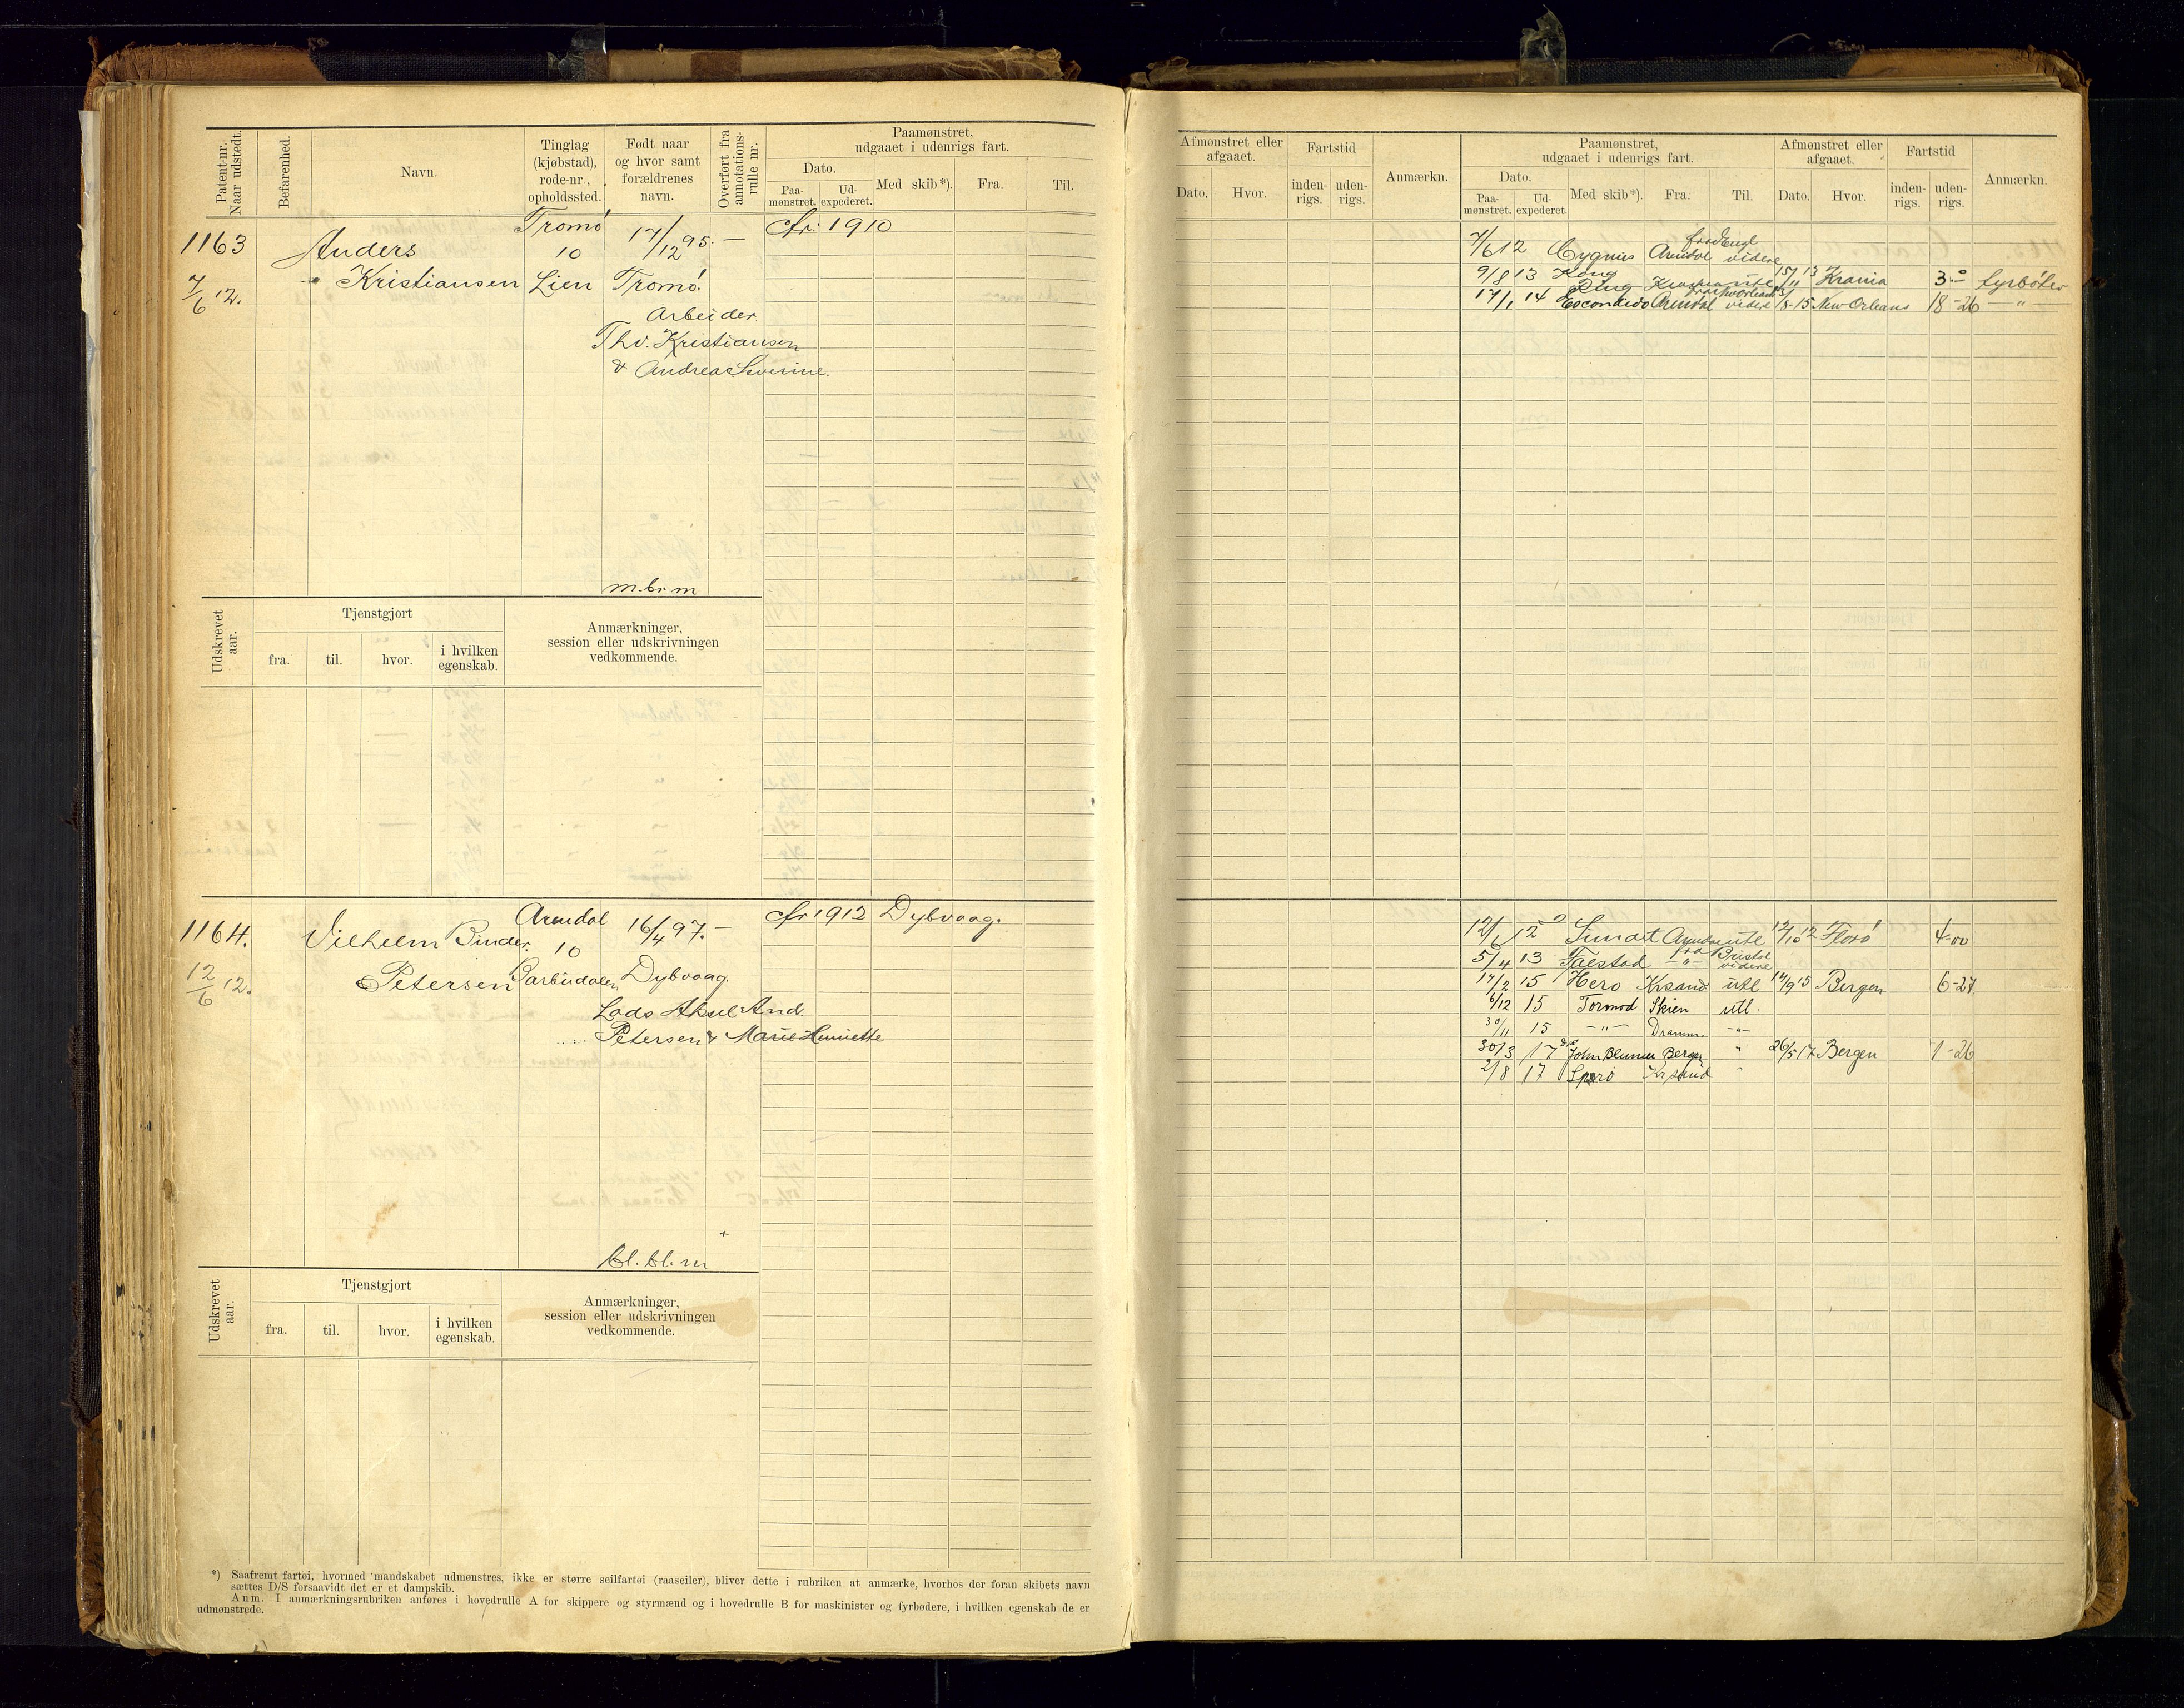 Patent-nr. Naar udstedt.
Befarenhed.
Navn.
Tinglag (kjøbstad), rode-nr., opholdssted.
Født naar og hvor samt forældrenes navn.
Overført fra annotations-rulle nr.
Paamønstret, udgaaet i udenrigs fart.
Dato.
Paa-mønstret.
Ud-expederet.
Med skib*).
Fra.
Til.
1163
7/6 12.
Anders
Kristiansen
Tromø
10
Lien
17/12 95. —
Tromø
Arbeider
Thv. Kristiansen
& Andrea Severine.
m. br m
cfr. 1910
Udskrevet aar.
Tjenstgjort
fra.
til.
hvor.
i hvilken egenskab.
Anmærkninger, session eller udskrivningen vedkommende.
1164.
12/6 12.
Vilhelm Binder
Petersen
Arendal
10
Barbudalen
16/4 97. —
Dybvaag.
Lods Aksel And.
Petersen & Marie Henriette
bl. bl. m
cfr 1912 Dybvaag.
Udskrevet aar.
Tjenstgjort
fra.
til.
hvor.
i hvilken egenskab.
Anmærkninger, session eller udskrivningen vedkommende.
*) Saafremt fartøi, hvormed mandskabet udmønstres, ikke er større seilfartøi (raaseiler), bliver dette i rubriken at anmærke, hvorhos der foran skibets navn
sættes D/S forsaavidt det er et dampskib.
Anm. I anmærkningsrubriken anføres i hovedrulle A for skippere og styrmænd og i hovedrulle B for maskinister og fyrbødere, i hvilken egenskab de er
udmønstrede.
Afmønstret eller afgaaet.
Dato.
Hvor.
Fartstid
inden-rigs.
uden-rigs.
Anmærkn.
Paamønstret, udgaaet i udenrigs fart.
Dato.
Paa-mønstret.
Ud-expederet.
Med skib*).
Fra.
Til.
Afmønstret eller afgaaet.
Dato.
Hvor.
Fartstid
inden-rigs.
uden-rigs.
Anmærkn.
7/6 12 Cygnus Arendal fra Engl videre
9/8 13 Kong Ring utl 15/11 13 Krania 3-0 fyrbøter
17/1 14 Escondido Arendal videre 15 New Orleans 18-26 — " —
12/6 12 Arendal utl 12/10 12 Florø 4-00
5/4 13 Falstad — " — fra Bristol videre
17/2 15 Hero Krsand utl 14/9 15 Bergen 6-27
6/12 15 Tormod Skien utl.
30/11 15 — " — Dramm. — " —
30/3 17 John Blumer Bergen " 26/5 17 Bergen 1-26
2/8 17 Spero Krsand "